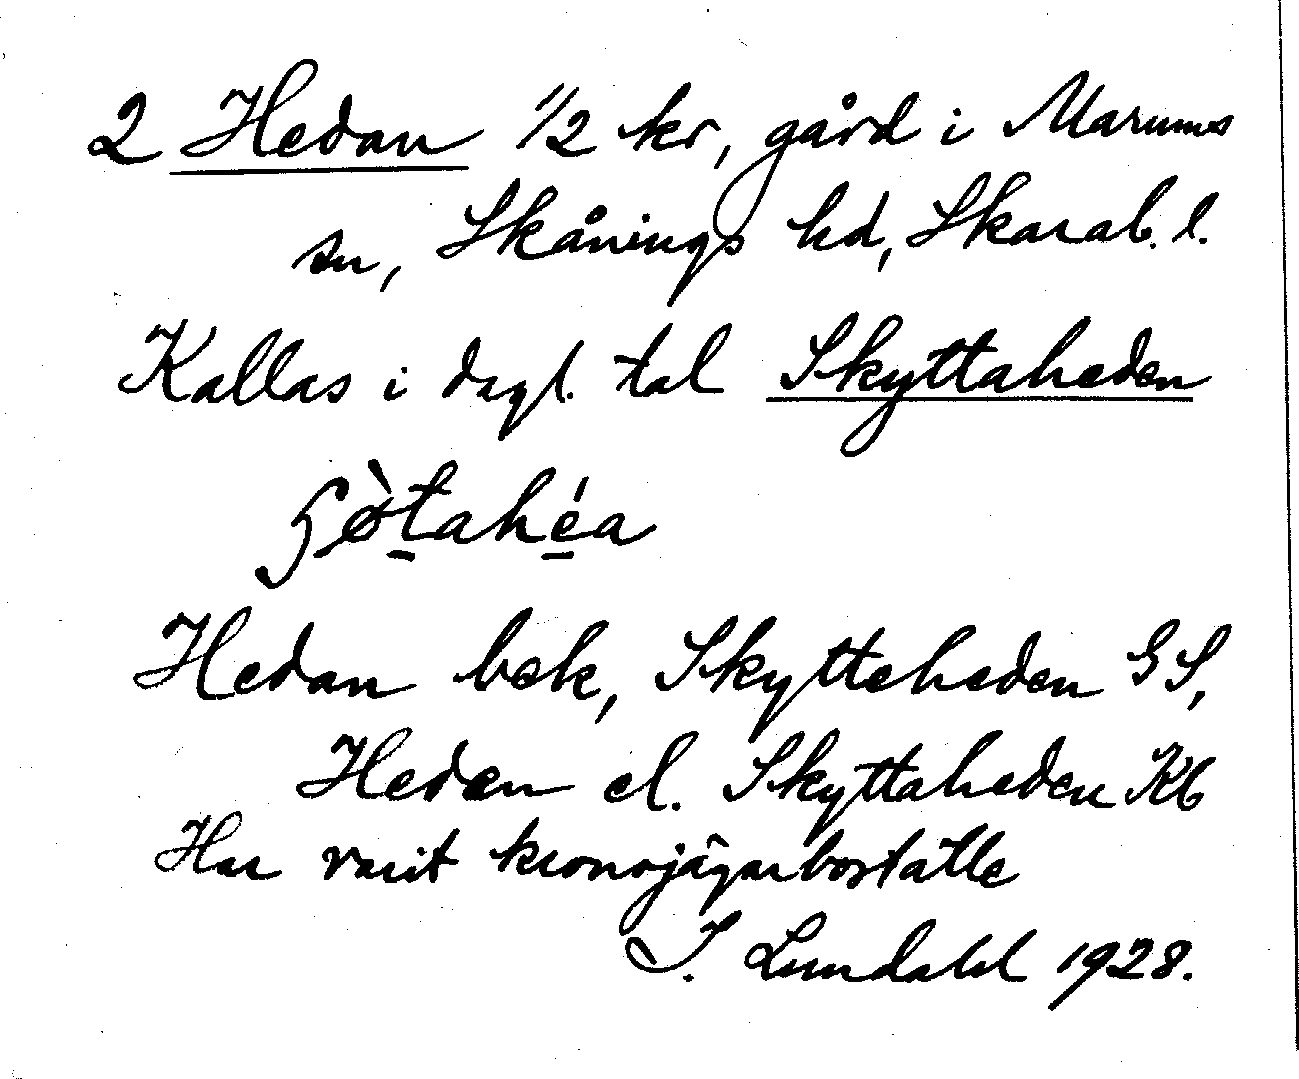 2 Hedan 1/2 kr, gård i Marums
sn, Skånings hd, Skarab. l.
Kallas i dagl. tal Skyttaheden
ʃø̀tahéa
Hedan bek, Skytteheden GS,
Heden el. Skyttaheden Kb
Har varit kronojägarboställe
I. Lundahl 1928.